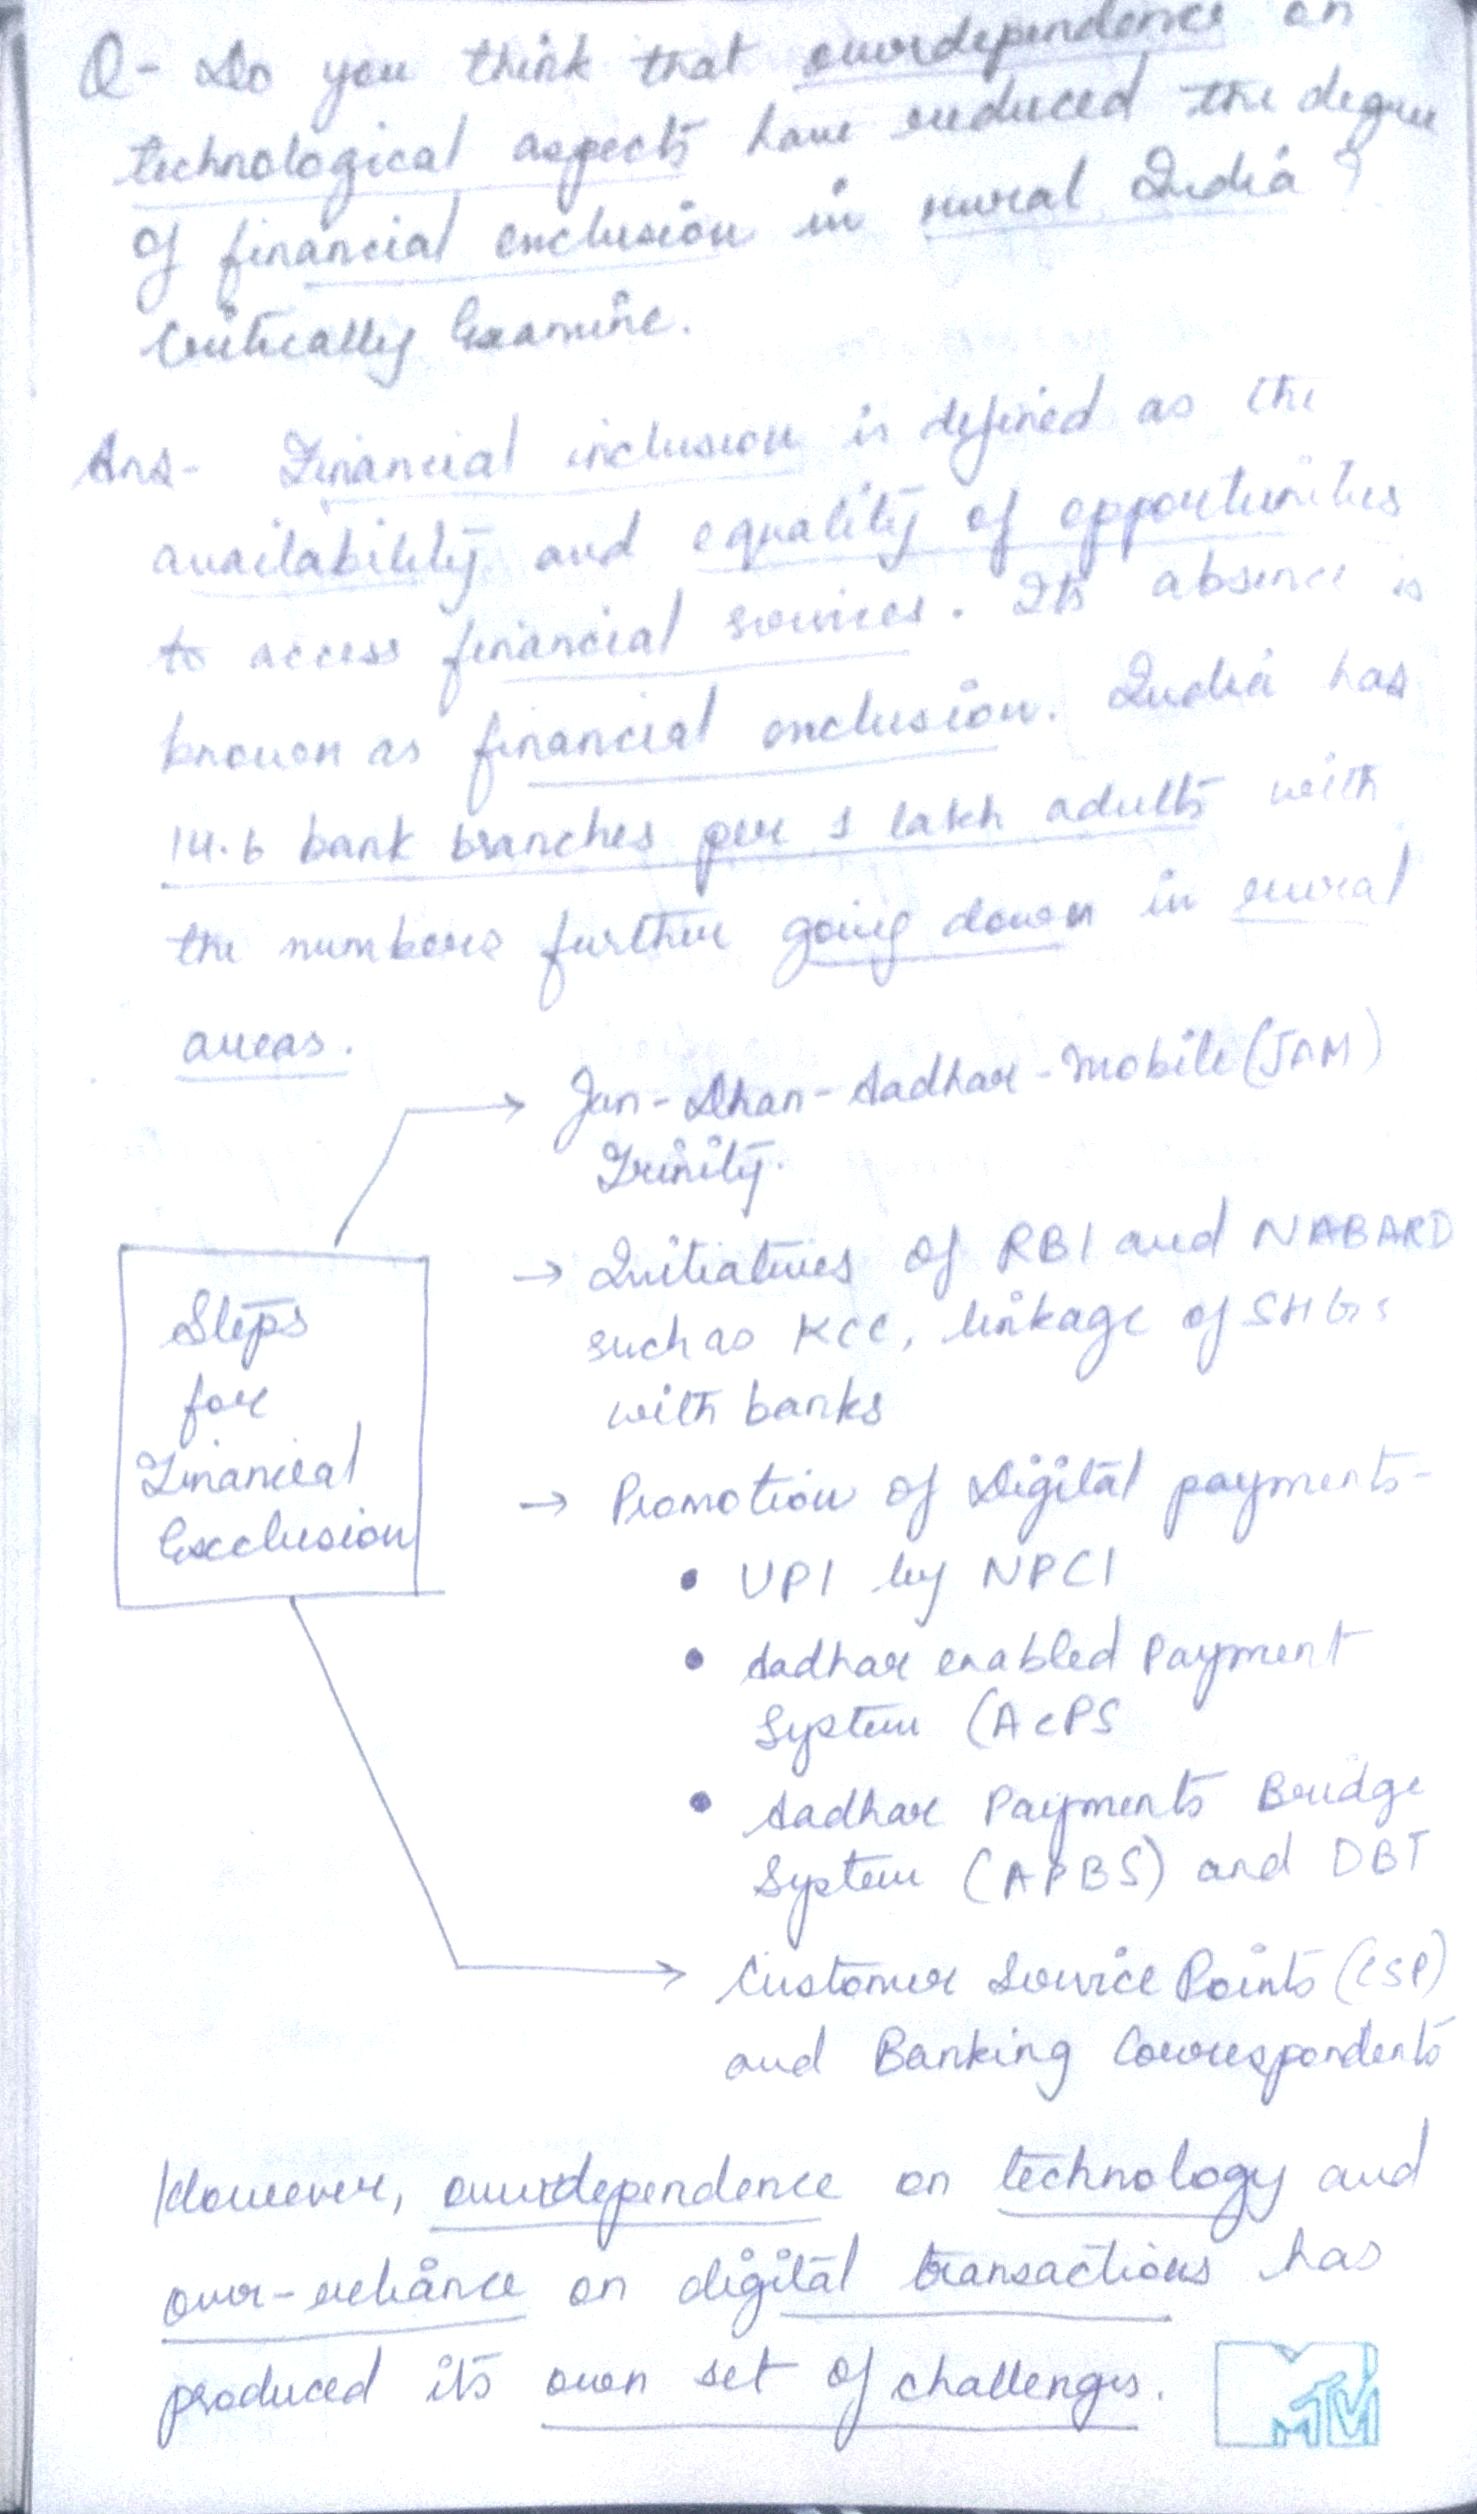 Q- Do you think that overdependence on
technological aspects have reduced the degree
of financial exclusion in rural India?
Critically Examine.
Ans- Financial inclusion is defined as the
availability and equality of opportunities
to access financial services. Its absence is
known as financial exclusion. India has
14.6 bank branches per 1 lakh adults with
the numbers further going down in rural
areas.
Jan-Dhan-Aadhar-Mobile (JAM)
Trinity.
Steps
for
Financial
Exclusion
→ Initiatives of RBI and NABARD
such as KCC, linkage of SHGs
with banks
→ Promotion of Digital payments-
• UPI by NPCI
• Aadhar enabled Payment
System (AePS
• Aadhar Payments Bridge
System (APBS) and DBT
Customer Service Points (CSP)
and Banking Correspondents
However, overdependence on technology and
over-reliance on digital transactions has
produced its own set of challenges.
MTV